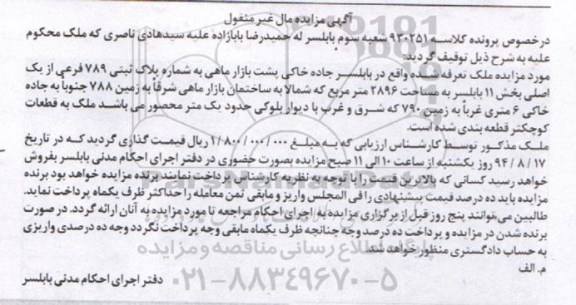 آگهی مزایده مال غیر منقول
درخصوص پرونده کلاسه ۹۳۰۲۵۱ شعبه سوم بابلسر له حمیدرضا بابازاده علیه سیدهادی ناصری که ملک محکوم
علیه به شرح ذیل توقیف گردید:
مورد مزایده ملک تعرفه شده واقع در بابلسر جاده خاکی پشت بازار ماهی به شماره پلاک ثبتی ۷۸۹ فرعی از یک
اصلی بخش ۱۱ بابلسر به مساحت ۲۸۹۶ متر مربع که شمالا به ساختمان بازار ماهی شرقاً به زمین ۷۸۸ جنوباً به جاده
خاکی ۶ متری غرباً به زمین ۷۹۰ که شرق و غرب با دیوار بلوکی حدود یک متر محصور می باشد ملک به قطعات
کوچکتر قطعه بندی شده است.
ملک مذکور توسط کارشناس ارزیابی که به مبلغ ۱/۸۰۰/۰۰۰/۰۰۰ ریال قیمت گذاری گردید که در تاریخ
۹۴/۸/۱۷ روز یکشنبه از ساعت ۱۰ الی ۱۱ صبح مزایده بصورت حضوری در دفتر اجرای احکام مدنی بابلسر بفروش
خواهد رسید کسانی که بالاترین قیمت را با توجه به نظریه کارشناس پرداخت نمایند برنده مزایده خواهد بود برنده
مزایده باید ده درصد قیمت پیشنهادی را فی المجلس واریز و مابقی ثمن معامله را حداکثر ظرف یکماه پرداخت نماید.
طالبین می‌توانند پنج روز قبل از برگزاری مزایده به اجرای احکام مراجعه تا مورد مزایده به آنان ارائه گردد. در صورت
برنده شدن در مزایده و پرداخت ده درصد وجه چنانچه ظرف یکماه مابقی وجه پرداخت نگردد وجه ده درصدی واریزی
به حساب دادگستری منظور خواهد شد.
م. الف
دفتر اجرای احکام مدنی بابلسر
پایگاه اطلاع رسانی مناقصه و مزایده
۰۲۱-۸۸۳۴۹۶۷۰-۵